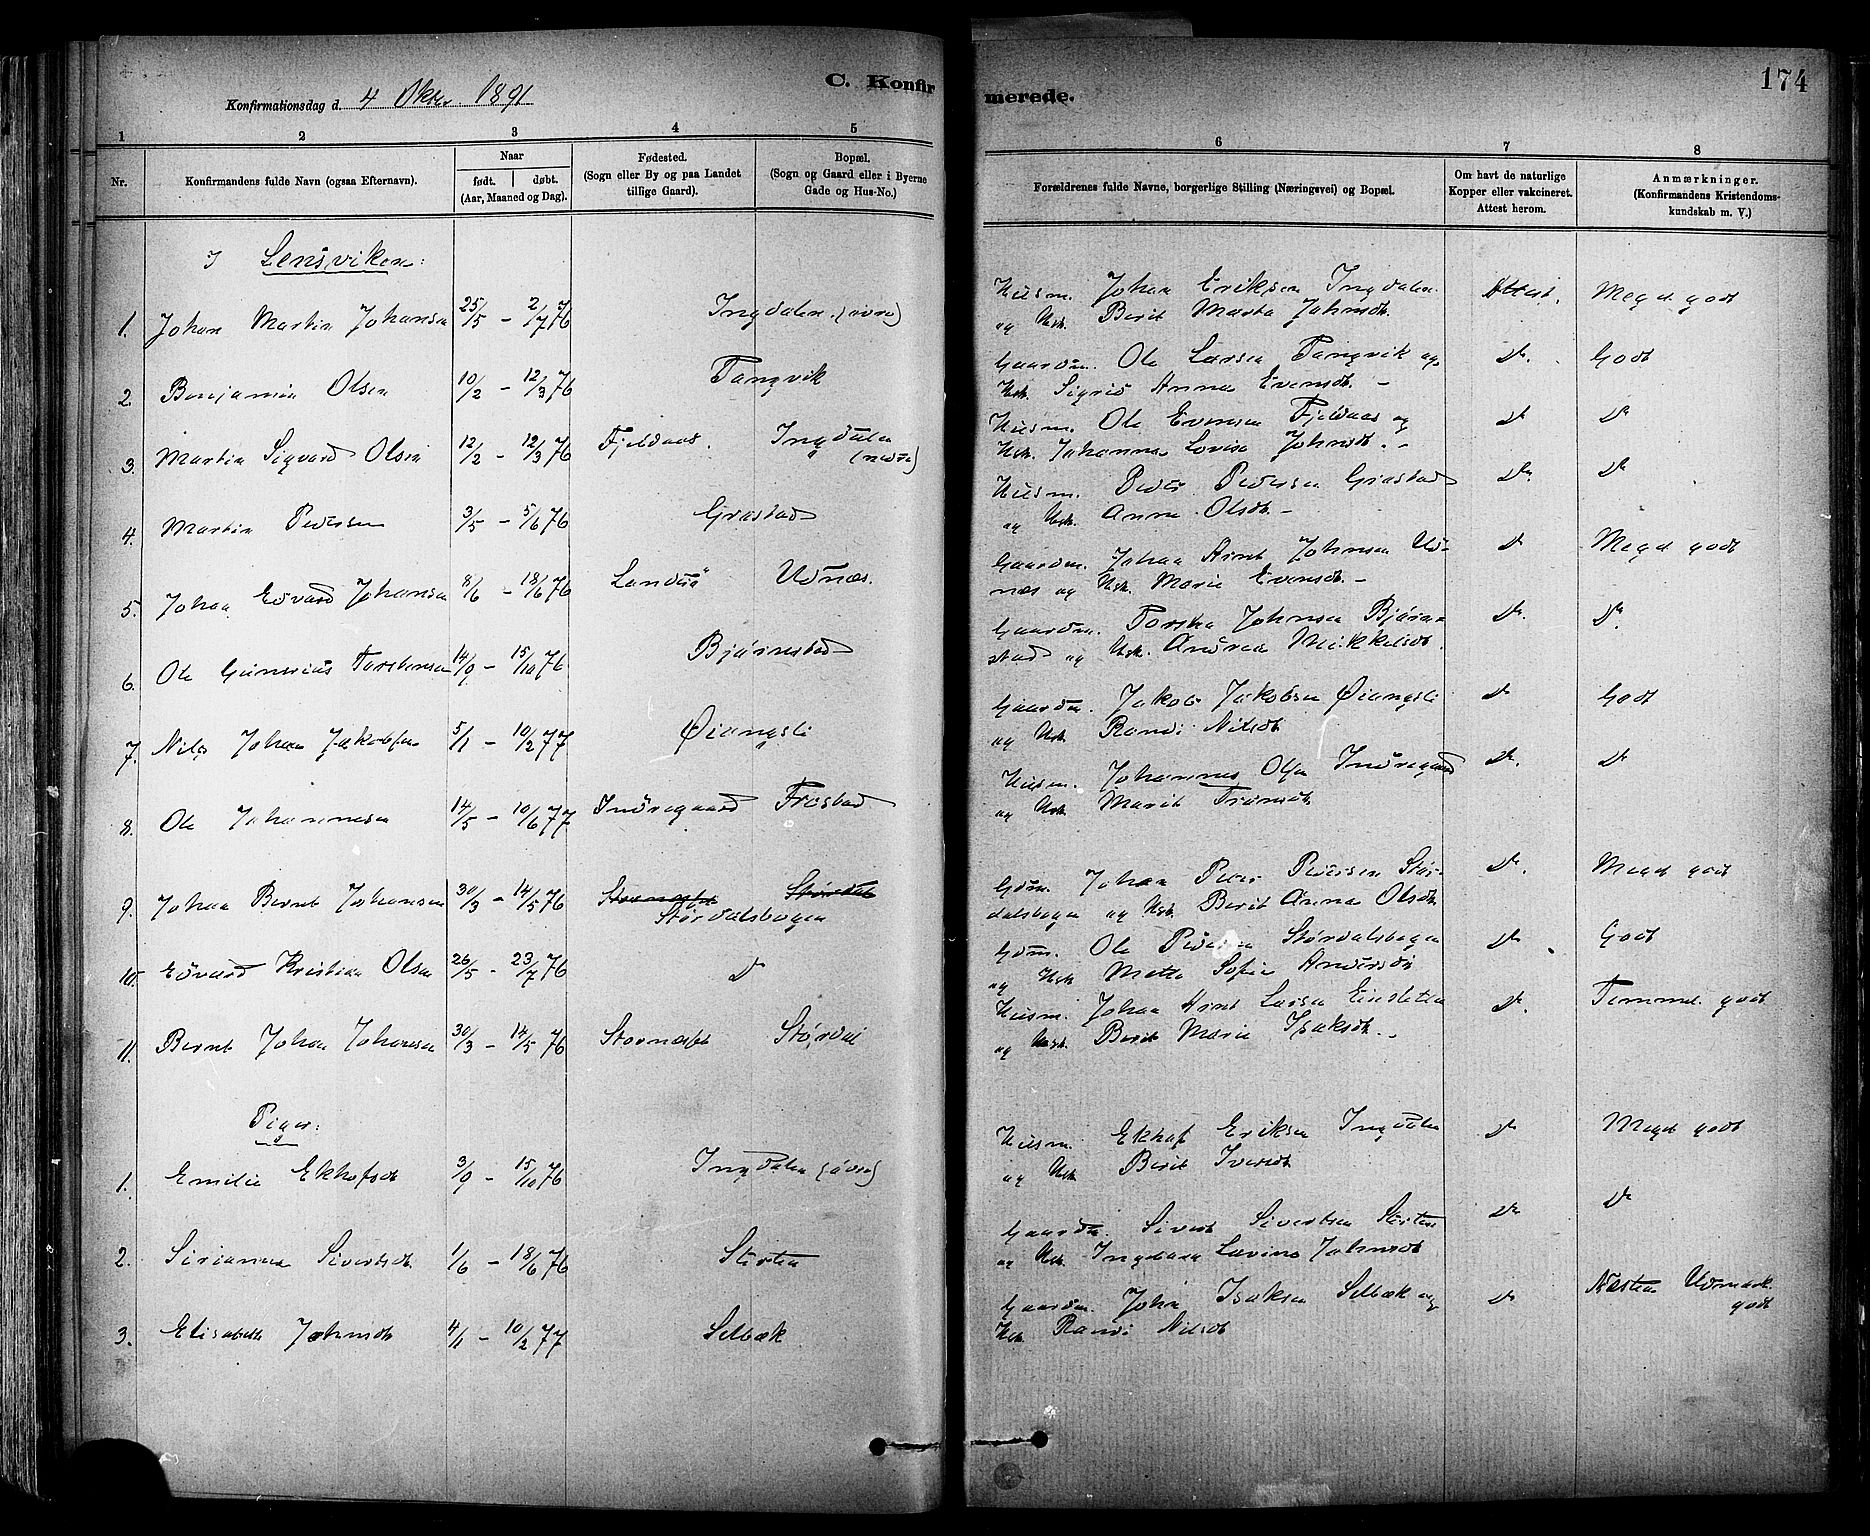 C. Konfirmerede.
174
Konfirmationsdag d. 4 Oktbr. 1891
1 2 3 4 5 6 7 8
Nr.
Konfirmandens fulde Navn (ogsaa Efternavn).
Naar
født. | døbt.
(Aar, Maaned og Dag).
Fødested.
(Sogn eller By og paa Landet
tillige Gaard).
Bopæl.
(Sogn og Gaard eller i Byerne
Gade og Hus-No.)
Forældrenes fulde Navne, borgerlige Stilling (Næringsvei) og Bopæl.
Om havt de naturlige
Kopper eller vakcineret.
Attest herom.
Anmærkninger.
(Konfirmandens Kristendoms-
kundskab m. V.)
I Lensviken:
1. Johan Martin Johansen 25/5 - 2/7 76 Ingdalen (øvre) Husm. Johan Eriksen Ingdalen Attest. Meget godt
og Hstr. Berit Marta Johnsdt.
2. Benjamin Olsen 10/2 - 12/3 76 Tangvik Gaardm. Ole Larsen Tangvik og Do. Godt
Hstr. Sigrid Anna Evensdt. -
3. Martin Sigvard Olsen 12/2 - 12/3 76 Fjeldaas. Ingdalen (nedre) Husm. Ole Evensen Fjeldaas og Do Do
Hstr. Johanna Lovise Johnsdt. -
4. Martin Pedersen 3/5 - 5/6 76 Grøstad Husm. Peder Pedersen Grøstad Do. Do
og Hstr. Anne Olsdt. -
5. Johan Edvard Johansen 8/6 - 18/6 76 Landrø Udnæs. Gaardm. Johan Arnt Johnsen Ud- Do Meget godt
næs og Hstr. Marie Evensdt. -
6. Ole Gunerius Torstensen 14/9 - 15/10 76 Bjørnstad Gaardm. Torsten Johnsen Bjørn- Do. Do.
stad og Hstr. Andrea Mikkelsdt.
7. Nils Johan Jakobsen 5/1 - 10/2 77 Øiangsli Gaardm. Jakob Jakobsen Øiangsli Do Godt
og Hstr. Randi Nilsdt
8. Ole Johannesen 14/5 - 10/6 77 Indregaard Frøstad Husm. Johannes Olsen Indregaard Do. Do
og Hstr. Marit Trondsdt
9. Johan Bernt Johansen 30/3 - 14/5 76 Størdalsbogen Gdm. Johan Peder Pedersen Stør- Do. Meget godt
dalsbogen og Hstr. Berit Anna Olsdt.
10. Edvard Kristian Olsen 26/5 - 23/7 76 Do Gdm. Ole Pedersen Størdalsbogen Do Godt
og Hstr Metta Sofie Andersdt
11. Bernt Johan Johansen 30/3 - 14/5 76 Stornæsset Størdal Husm. Johan Arnt Larsen Do. Temmel. godt
og Hstr. Berit Marie Isaksdt. -
Piger:
1. Emilie Ekhofsdt 3/9 - 15/10 76 Ingdalen (øvre) Husm. Ekhof Eriksen Ingdalen Do Meget godt
og Hstr Berit Iversdt
2. Sirianna Sivertsdt. 1/6 - 18/6 76 Stisten Gaardm. Sivert Sivertsen Do Do
og Hstr. Lovina Johnsdt
3. Elisabeth Johnsdt 4/1 - 10/2 77 Selbæk Gaardm. John Isaksen Selbæk og Do Næsten Udmærk.
Hstr. Randi Nilsdt godt